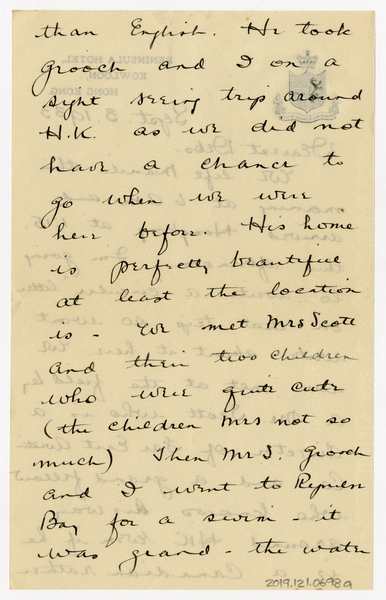 than English. He took
Grooch and I on a
sight seeing trip around
H.K. as we did not
have a chance to
go when we were
here before. His home
is perfectly beautiful
at least the location
is - We met Mrs Scott
and their two children
who were quite cute
(the children Mrs not so
much) Then Mr S. Grooch
and I went to Repulse
Bay for a swim - it
was grand - the water
2019.121.0698a